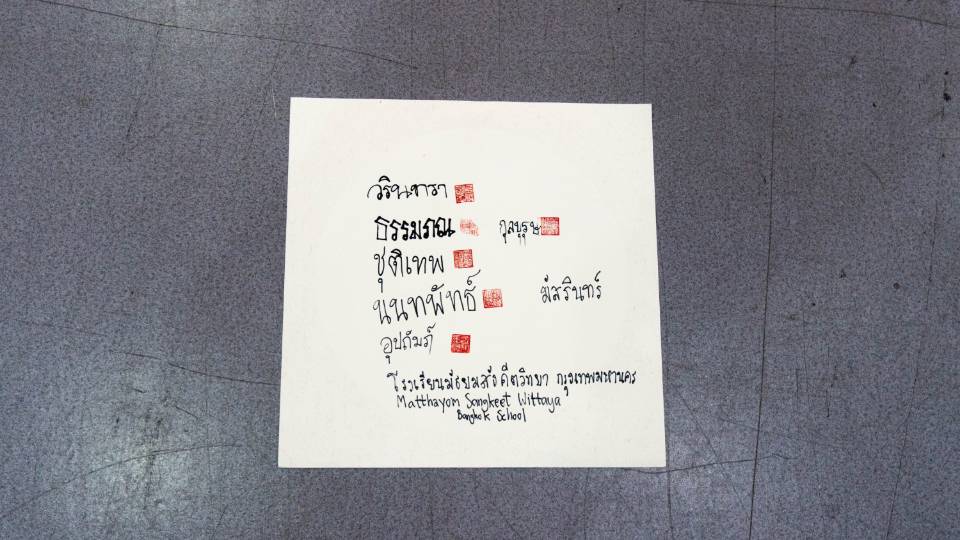 วรินทารา
ธรรมภณ กุลบุรุษ
ชุติเทพ
นนทพัทธ์ มัสรินทร์
อุปถัมภ์
โรงเรียนมัธยมสังคีตวิทยา กรุงเทพมหานคร
Matthayom Sangkeet Wittaya
Bangkok School